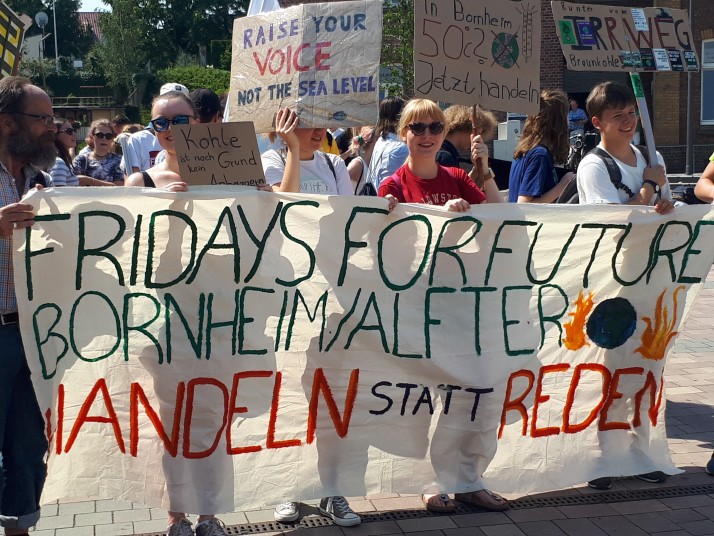 RAISE YOUR
VOICE
NOT THE SEA LEVEL
In Bornheim
50%
Jetzt handeln
Bunte vom
IRRWEG
Braunkohle
Kohle
ist noch Grund
kein
FRIDAYS FOR FUTURE
BORNHEIM/ALFTER
HANDELN STATT REDEN